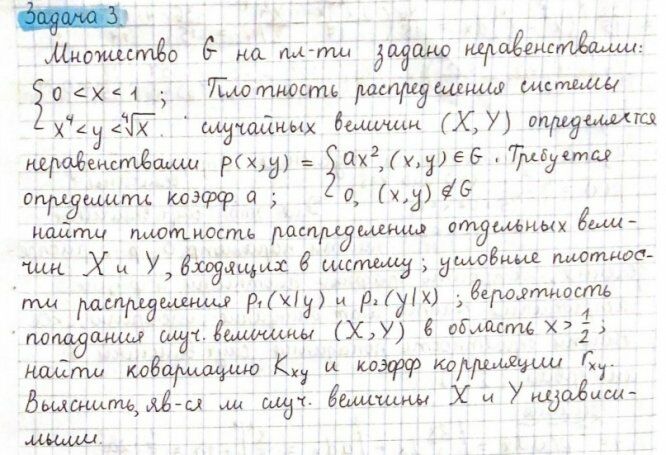 Задача 3.
Множество G на пл-ти задано неравенствами:
{ 0 < x < 1 ; Плотность распределения системы
x⁴ < y < ⁴√x. случайных величин (X, Y) определяется
неравенствами p(x, y) = { ax², (x, y) ∈ G . Требуется
определить коэфф a ; 0, (x, y) ∉ G
найти плотность распределения отдельных вели-
чин X и Y, входящих в систему; условные плотнос-
ти распределения p₁(x|y) и p₂(y|x) ; вероятность
попадания случ. величины (X, Y) в область x > 1/2 ;
найти ковариацию Kxy и коэфф корреляции rxy.
Выяснить, яв-ся ли случ. величины X и Y независи-
мыми.